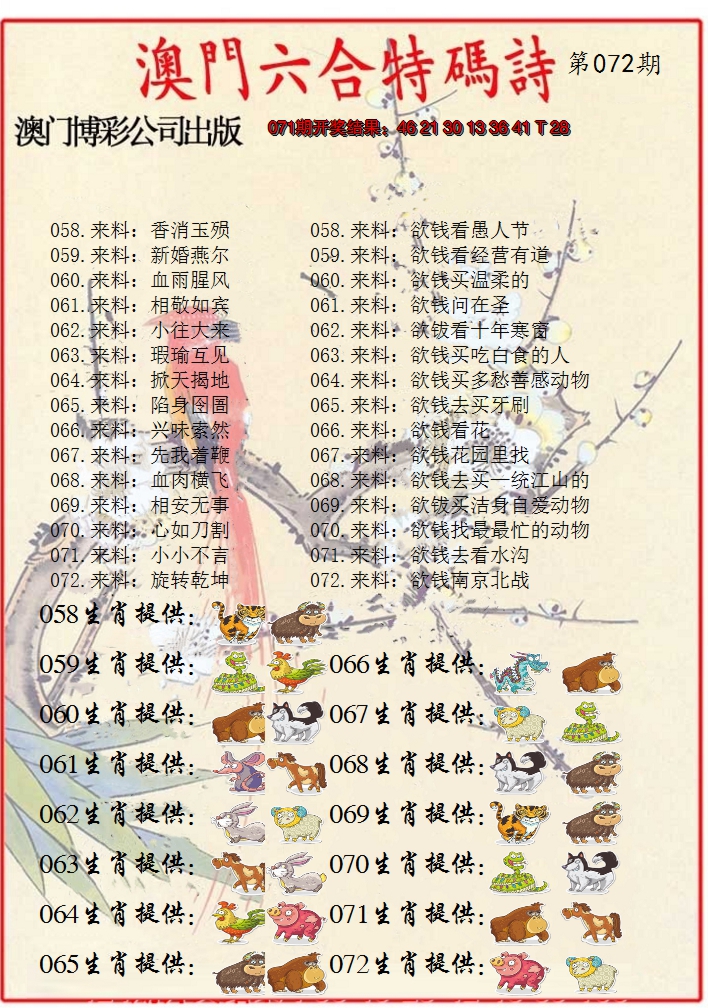 澳門六合特碼詩 第072期
澳门博彩公司出版 071期开奖结果：46 21 30 13 36 41 T 28
058.来料：香消玉殒 058.来料：欲钱看愚人节
059.来料：新婚燕尔 059.来料：欲钱看经营有道
060.来料：血雨腥风 060.来料：欲钱买温柔的
061.来料：相敬如宾 061.来料：欲钱问在圣
062.来料：小往大来 062.来料：欲钹看十年寒窗
063.来料：瑕瑜互见 063.来料：欲钱买吃白食的人
064.来料：掀天揭地 064.来料：欲钱买多愁善感动物
065.来料：陷身囹圄 065.来料：欲钱去买牙刷
066.来料：兴味索然 066.来料：欲钱看花
067.来料：先我着鞭 067.来料：欲钱花园里找
068.来料：血肉横飞 068.来料：欲钱去买一统江山的
069.来料：相安无事 069.来料：欲钹买洁身自爱动物
070.来料：心如刀割 070.来料：欲钱找最最忙的动物
071.来料：小小不言 071.来料：欲钱去看水沟
072.来料：旋转乾坤 072.来料：欲钱南京北战
058生肖提供：
059生肖提供： 066生肖提供：
060生肖提供： 067生肖提供：
061生肖提供： 068生肖提供：
062生肖提供： 069生肖提供：
063生肖提供： 070生肖提供：
064生肖提供： 071生肖提供：
065生肖提供： 072生肖提供：